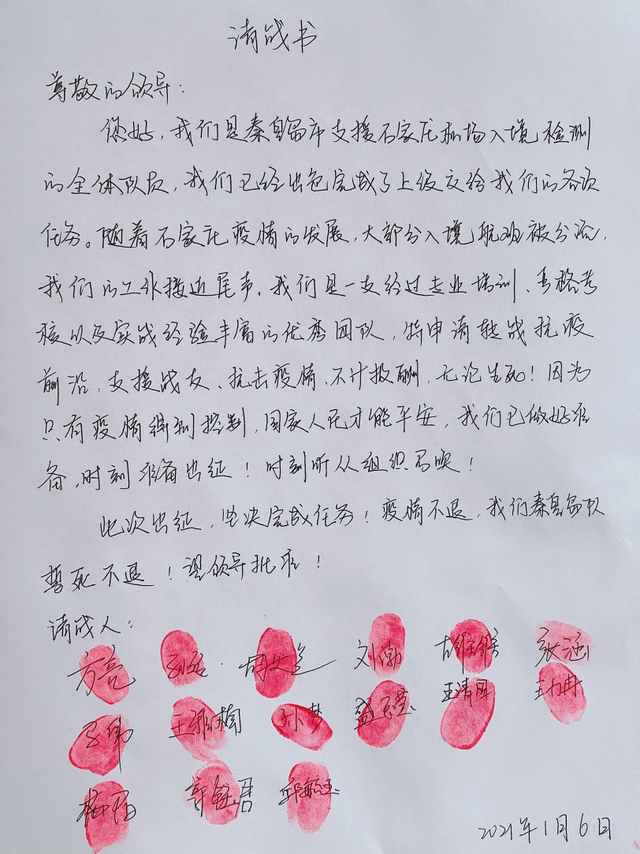 请战书
尊敬的领导：
您好，我们是秦皇岛市支援石家庄机场入境检测
的全体队员，我们已经出色完成了上级交给我们的各项
任务。随着石家庄疫情的发展，大部分入境航班被分流，
我们的工作接近尾声。我们是一支经过专业培训、严格考
核以及实战经验丰富的优秀团队，特申请转战抗疫
前沿，支援战友、抗击疫情、不计报酬，无论生死！因为
只有疫情得到控制，国家人民才能平安，我们已做好准
备，时刻准备出征！时刻听从组织召唤！
此次出征，坚决完成任务！疫情不退，我们秦皇岛队
誓死不退！望领导批准！
请战人：
方亮 刘勃 张涵
王雅楠 孙梦 王清国
2021年1月6日